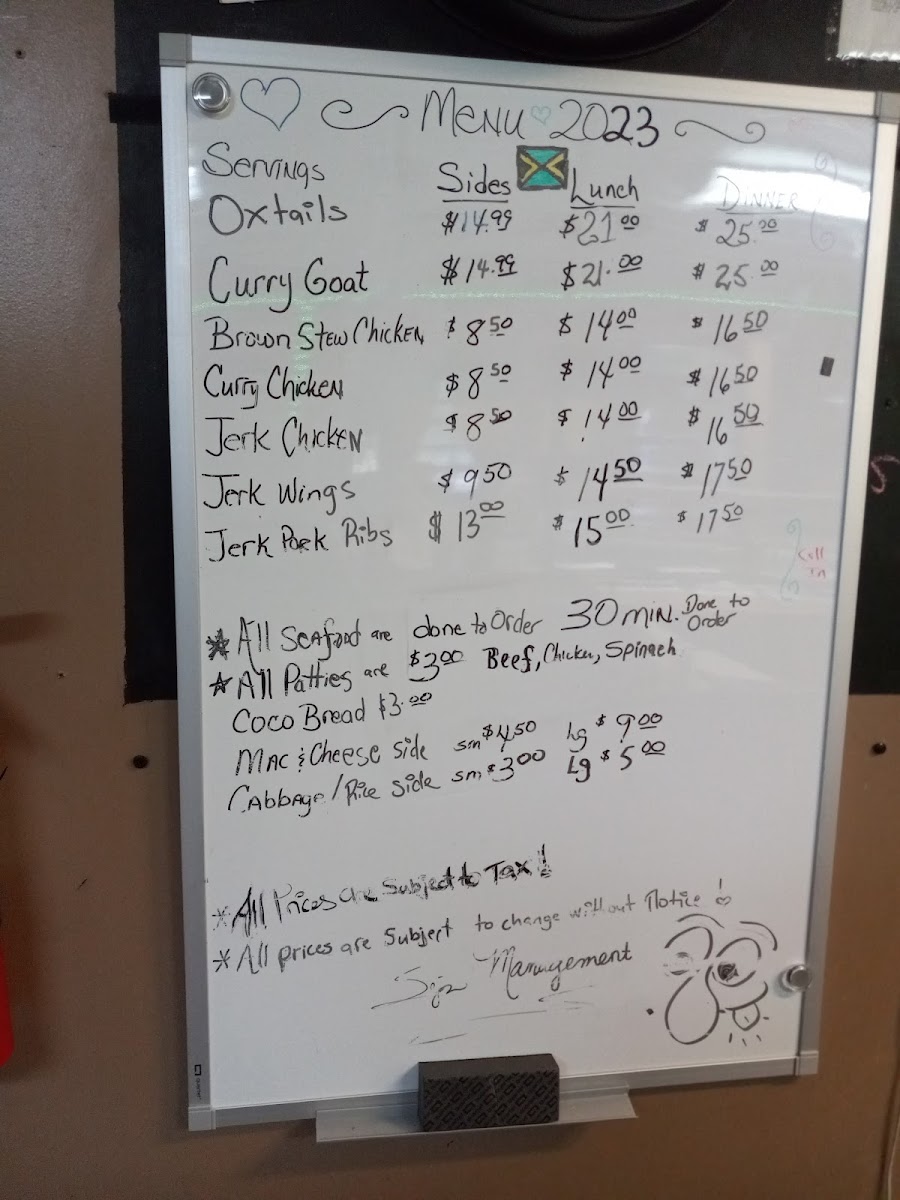 Menu 2023
Servings Sides Lunch Dinner
Oxtails $14.99 $21.00 $25.00
Curry Goat $14.99 $21.00 $25.00
Brown Stew Chicken $8.50 $14.00 $16.50
Curry Chicken $8.50 $14.00 $16.50
Jerk Chicken $8.50 $14.00 $16.50
Jerk Wings $9.50 $14.50 $17.50
Jerk Pork Ribs $13.00 $15.00 $17.50
Call
In
* All Seafood are done to Order 30 min. Done to Order
* All Patties are $3.00 Beef, Chicken, Spinach
Coco Bread $3.00
Mac & Cheese side sm $4.50 Lg $9.00
Cabbage/Rice side sm $3.00 Lg $5.00
* All Prices are Subject to Tax!
* All prices are Subject to change without Notice!
Management